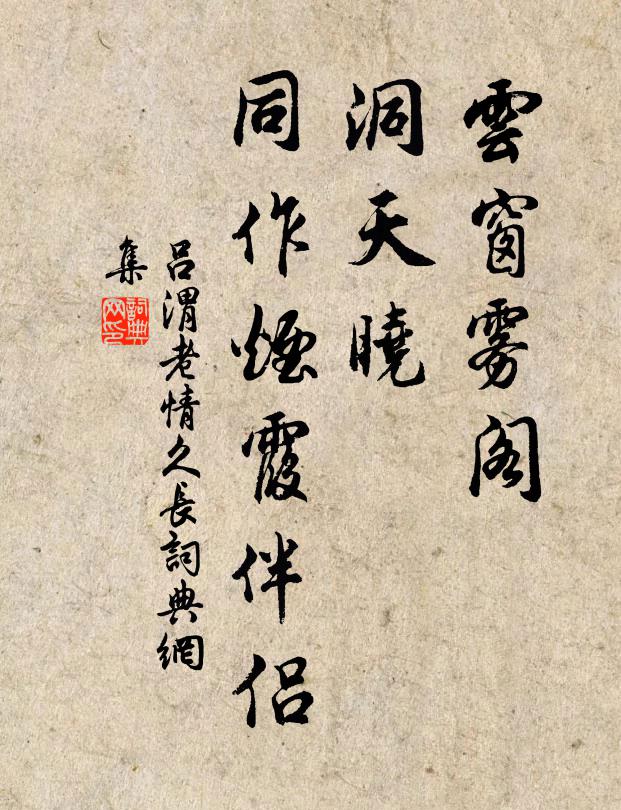 雲窗雾阁
洞天曉
同作煙霞伴侶
吕渭老情久長詞典網
集
詞典
网印